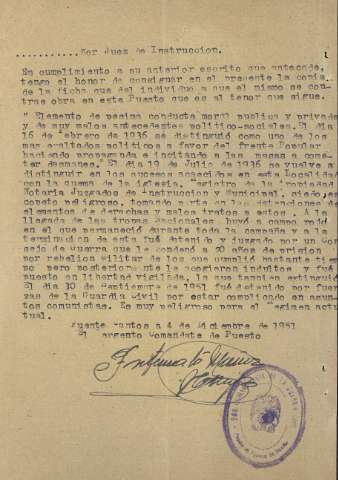 ..........Sor Juez de Instruccion.
En cumplimiento a su anterior escrito que antecede,
tengo el honor de consignar en el presente la copia
de la ficha que del individuo a que el mismo se con-
trae obra en este Puesto que es al tenor que sigue.
" Elemento de pesima conducta moral publica y privada
y de muy malos antecedentes politico-sociales. El dia
16 de febrero de 1936 se distinguió como uno de los
mas exaltados politicos a favor del frente Popular
haciendo propaganda e incitando a las masas a come-
ter desmanes. El dia 19 de Julio de 1936 se vuelve a
distinguir en los sucesos acaecidos en esta Localidad
con la quema de la iglesia, registro de la propiedad
Notaria Juzgados de Instruccion y Municipal, siendo
peligroso, tomando parte en las detenciones de
elementos de derechas y malos tratos a estos. A la
llegada de las tropas Nacionales huyó a campo rojo
en el que permaneció durante toda la campaña y a la
terminacion de esta fué detenido y juzgado por un Con-
sejo de Guerra que le condenó a 30 años de prision
por rebelion Militar de los que cumplió bastante tiem-
po pero posteriormente le indultos y fué
puesto en libertad vigilada, la que tambien extinguió
El dia 30 de Septiembre de 1951 fué detenido por fuer-
zas de la Guardia Civil por estar complicado en asun-
tos comunistas. Es muy peligroso para el Regimen act-
tual.
Fuente Cantos a 4 de Diciembre de 1951
El Sargento Comandate de Puesto